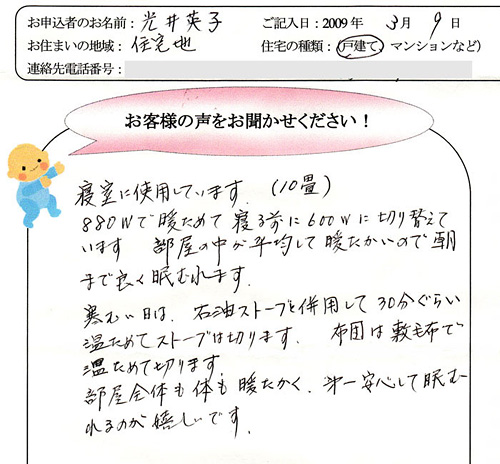 お申込者のお名前：光井英子
ご記入日：2009年 3月 9日
お住まいの地域：住宅地
住宅の種類：戸建て、マンションなど）
連絡先電話番号：
お客様の声をお聞かせください！
寝室に使用しています。（10畳）
880Wで暖ためて寝る前に600Wに切り替えて
います 部屋の中が平均して暖たかいので朝
まで良く眠むれます。
寒むい日は、石油ストーブと併用して30分ぐらい
温ためてストーブは切ります。 布団は敷毛布で
温ためて切ります。
部屋全体も体も暖たかく、第一安心して眠む
れるのが嬉しいです。